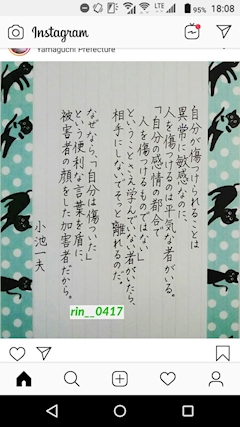 95% 18:08
Instagram
Yamaguchi Prefecture
自分が傷つけられることは
異常に敏感なのに、
人を傷つけるのは平気な者がいる。
「自分の感情の都合で
人を傷つけるものではない」
ということさえ学んでいない者がいたら、
相手にしないでそっと離れるのだ。
なぜなら、「自分は傷ついた」
という便利な言葉を盾に、
被害者の顔をした加害者だから。
小池一夫
rin__0417